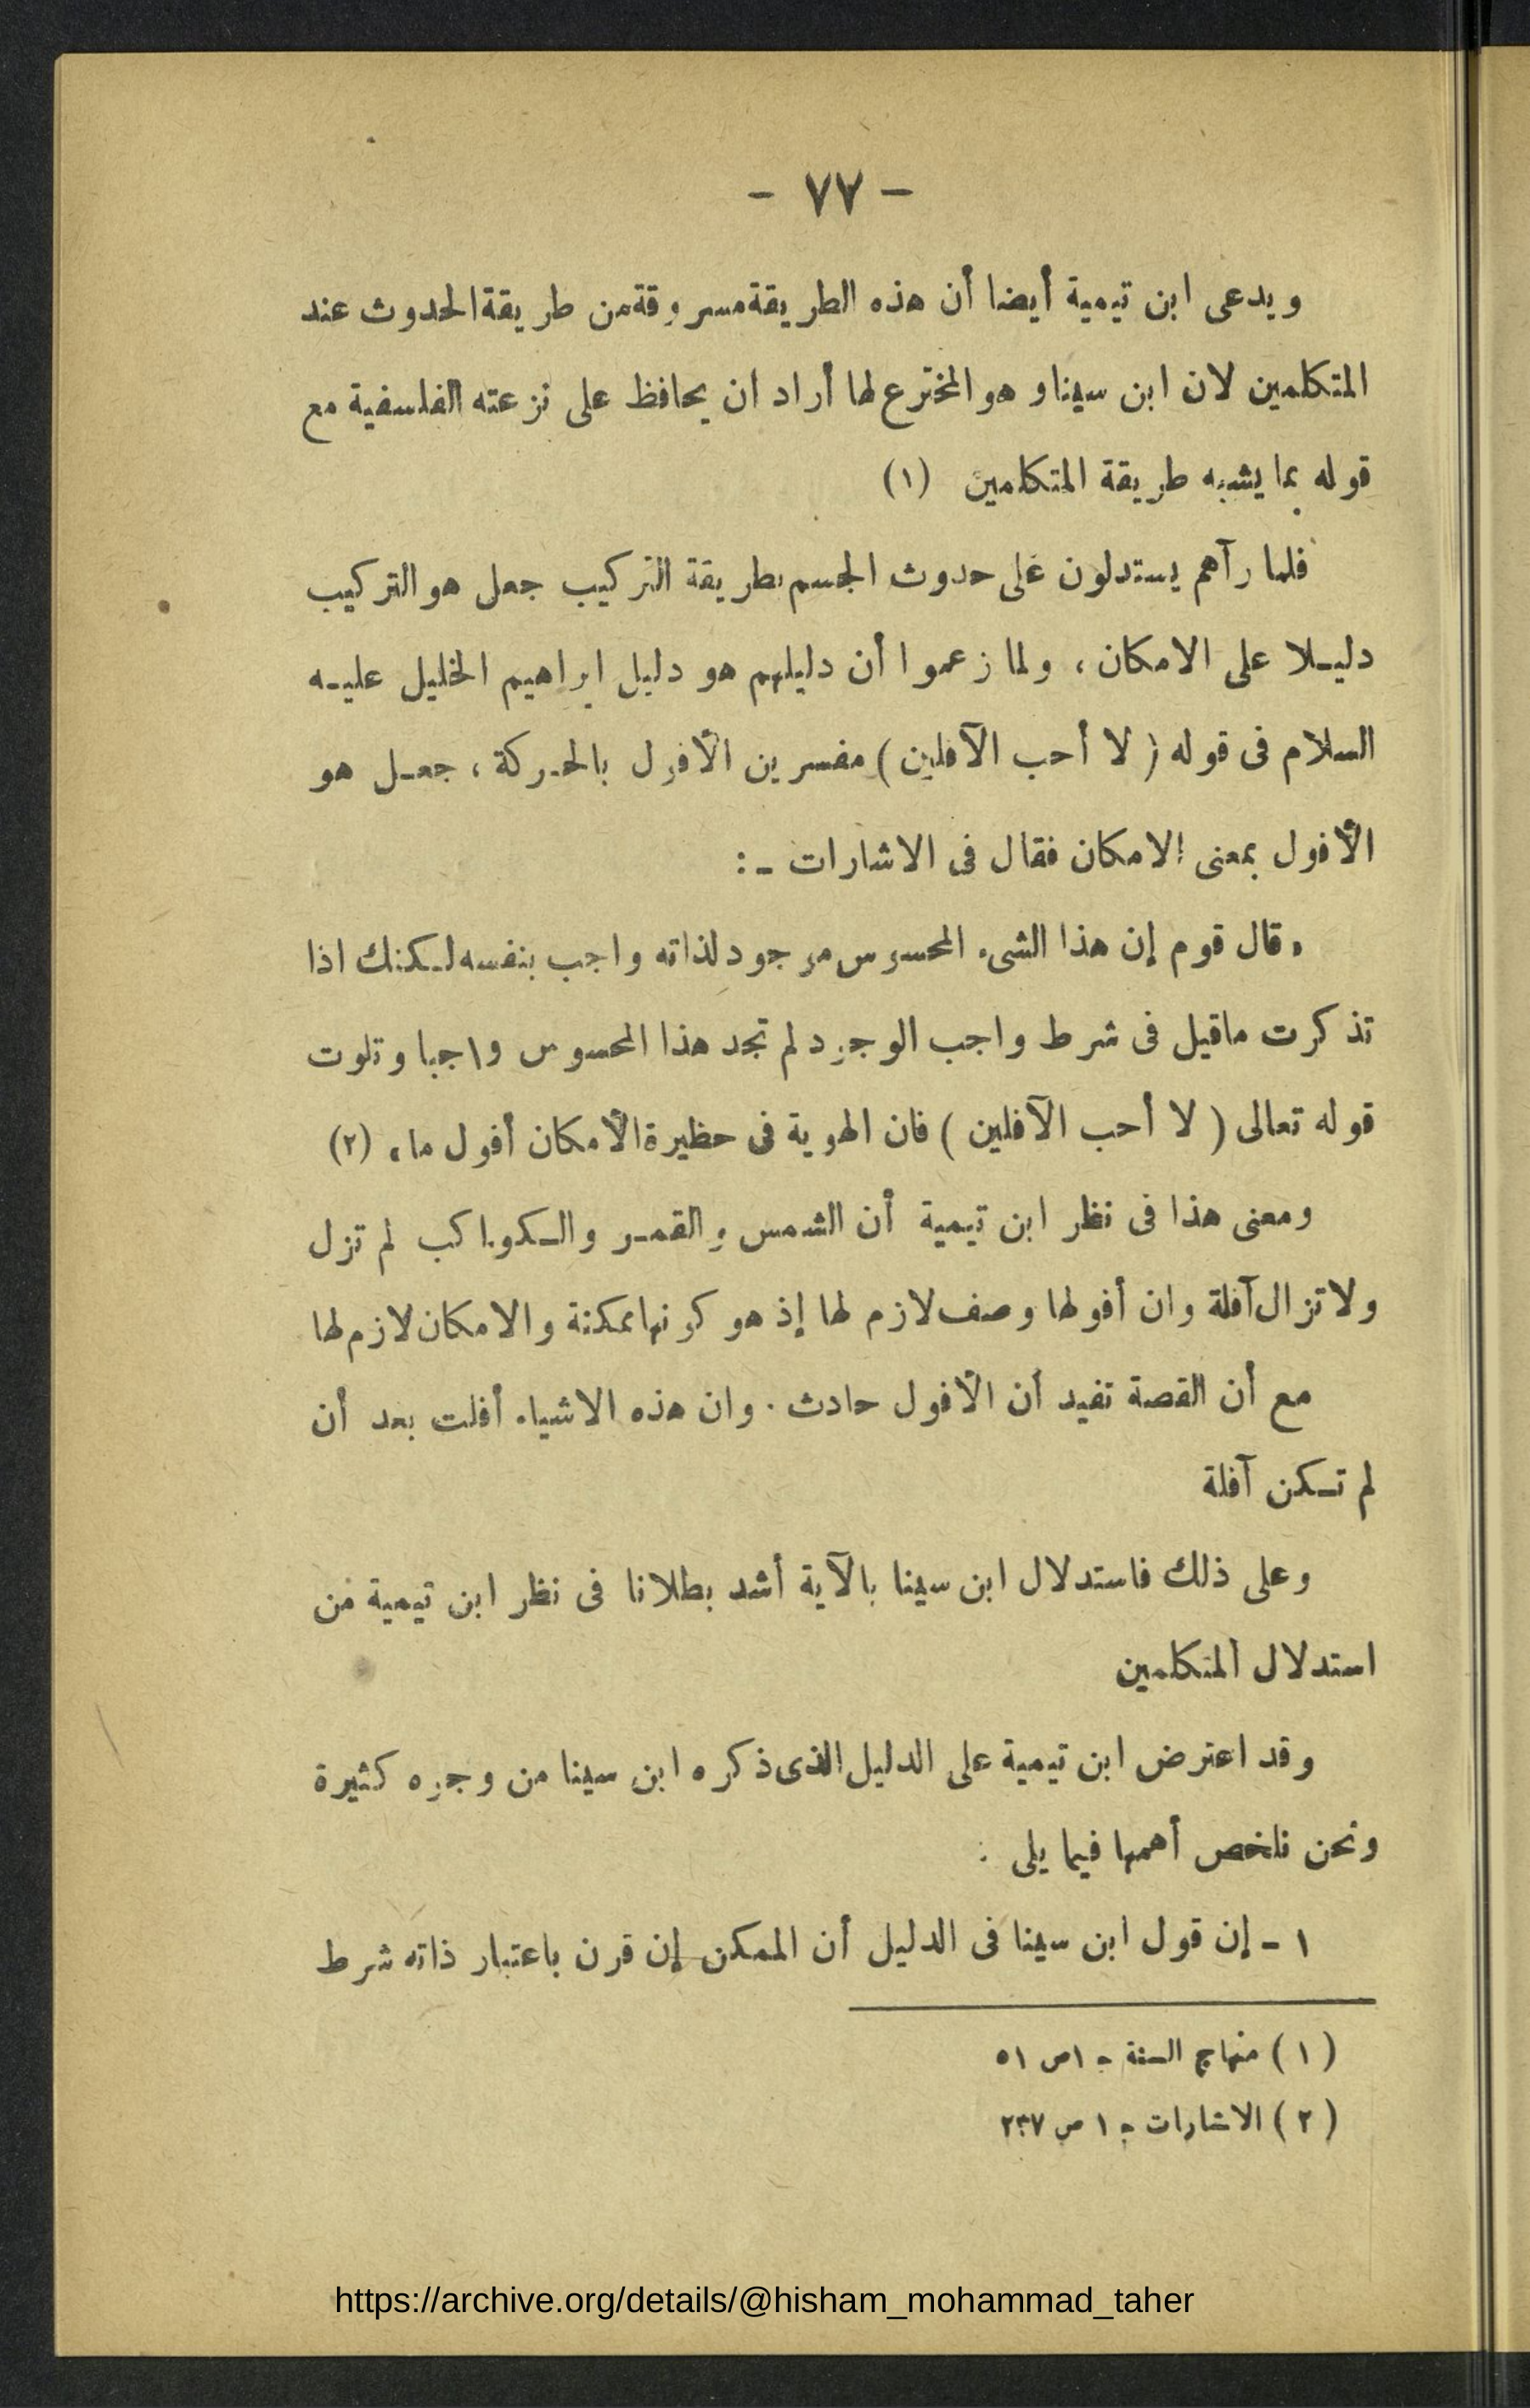 - ٧٧ -
ويدعى ابن تيمية أيضا أن هذه الطريقة مسروقة من طريقة الحدوث عند
المتكلمين لان ابن سينا وهو المخترع لها أراد ان يحافظ على نزعته الفلسفية مع
قوله بما يشبه طريقة المتكلمين (١)
فلما رآهم يستدلون على حدوث الجسم بطريقة التركيب جعل هو التركيب
دليـلا على الامكان ، ولما زعموا أن دليلهم هو دليل ابراهيم الخليل عليـه
السلام فى قوله ( لا أحب الآفلين ) مفسرين الأفول بالحـركة ، جعـل هو
الأفول بمعنى الامكان فقال فى الاشارات ـ :
« قال قوم إن هذا الشىء المحسوس موجود لذاته واجب بنفسه لـكنك اذا
تذكرت ماقيل فى شرط واجب الوجود لم تجد هذا المحسوس واجبا وتلوت
قوله تعالى ( لا أحب الآفلين ) فان الهوية فى حظيرة الأمكان أفول ما » (٢)
ومعنى هذا فى نظر ابن تيمية أن الشمس والقمـر والـكواكب لم تزل
ولا تزال آفلة وان أفولها وصف لازم لها إذ هو كونها ممكنة والامكان لازم لها
مع أن القصة تفيد أن الأفول حادث . وان هذه الاشياء أفلت بعد أن
لم تـكن آفلة
وعلى ذلك فاستدلال ابن سينا بالآية أشد بطلانا فى نظر ابن تيمية من
استدلال المتكلمين
وقد اعترض ابن تيمية على الدليل الذى ذكره ابن سينا من وجوه كثيرة
ونحن نلخص أهمها فيما يلى :
١ ـ إن قول ابن سينا فى الدليل أن الممكن إن قرن باعتبار ذاته شرط
( ١ ) منهاج السنة ج ١ ص ٥١
( ٢ ) الاشارات ج ١ ص ٢٣٧
https://archive.org/details/@hisham_mohammad_taher